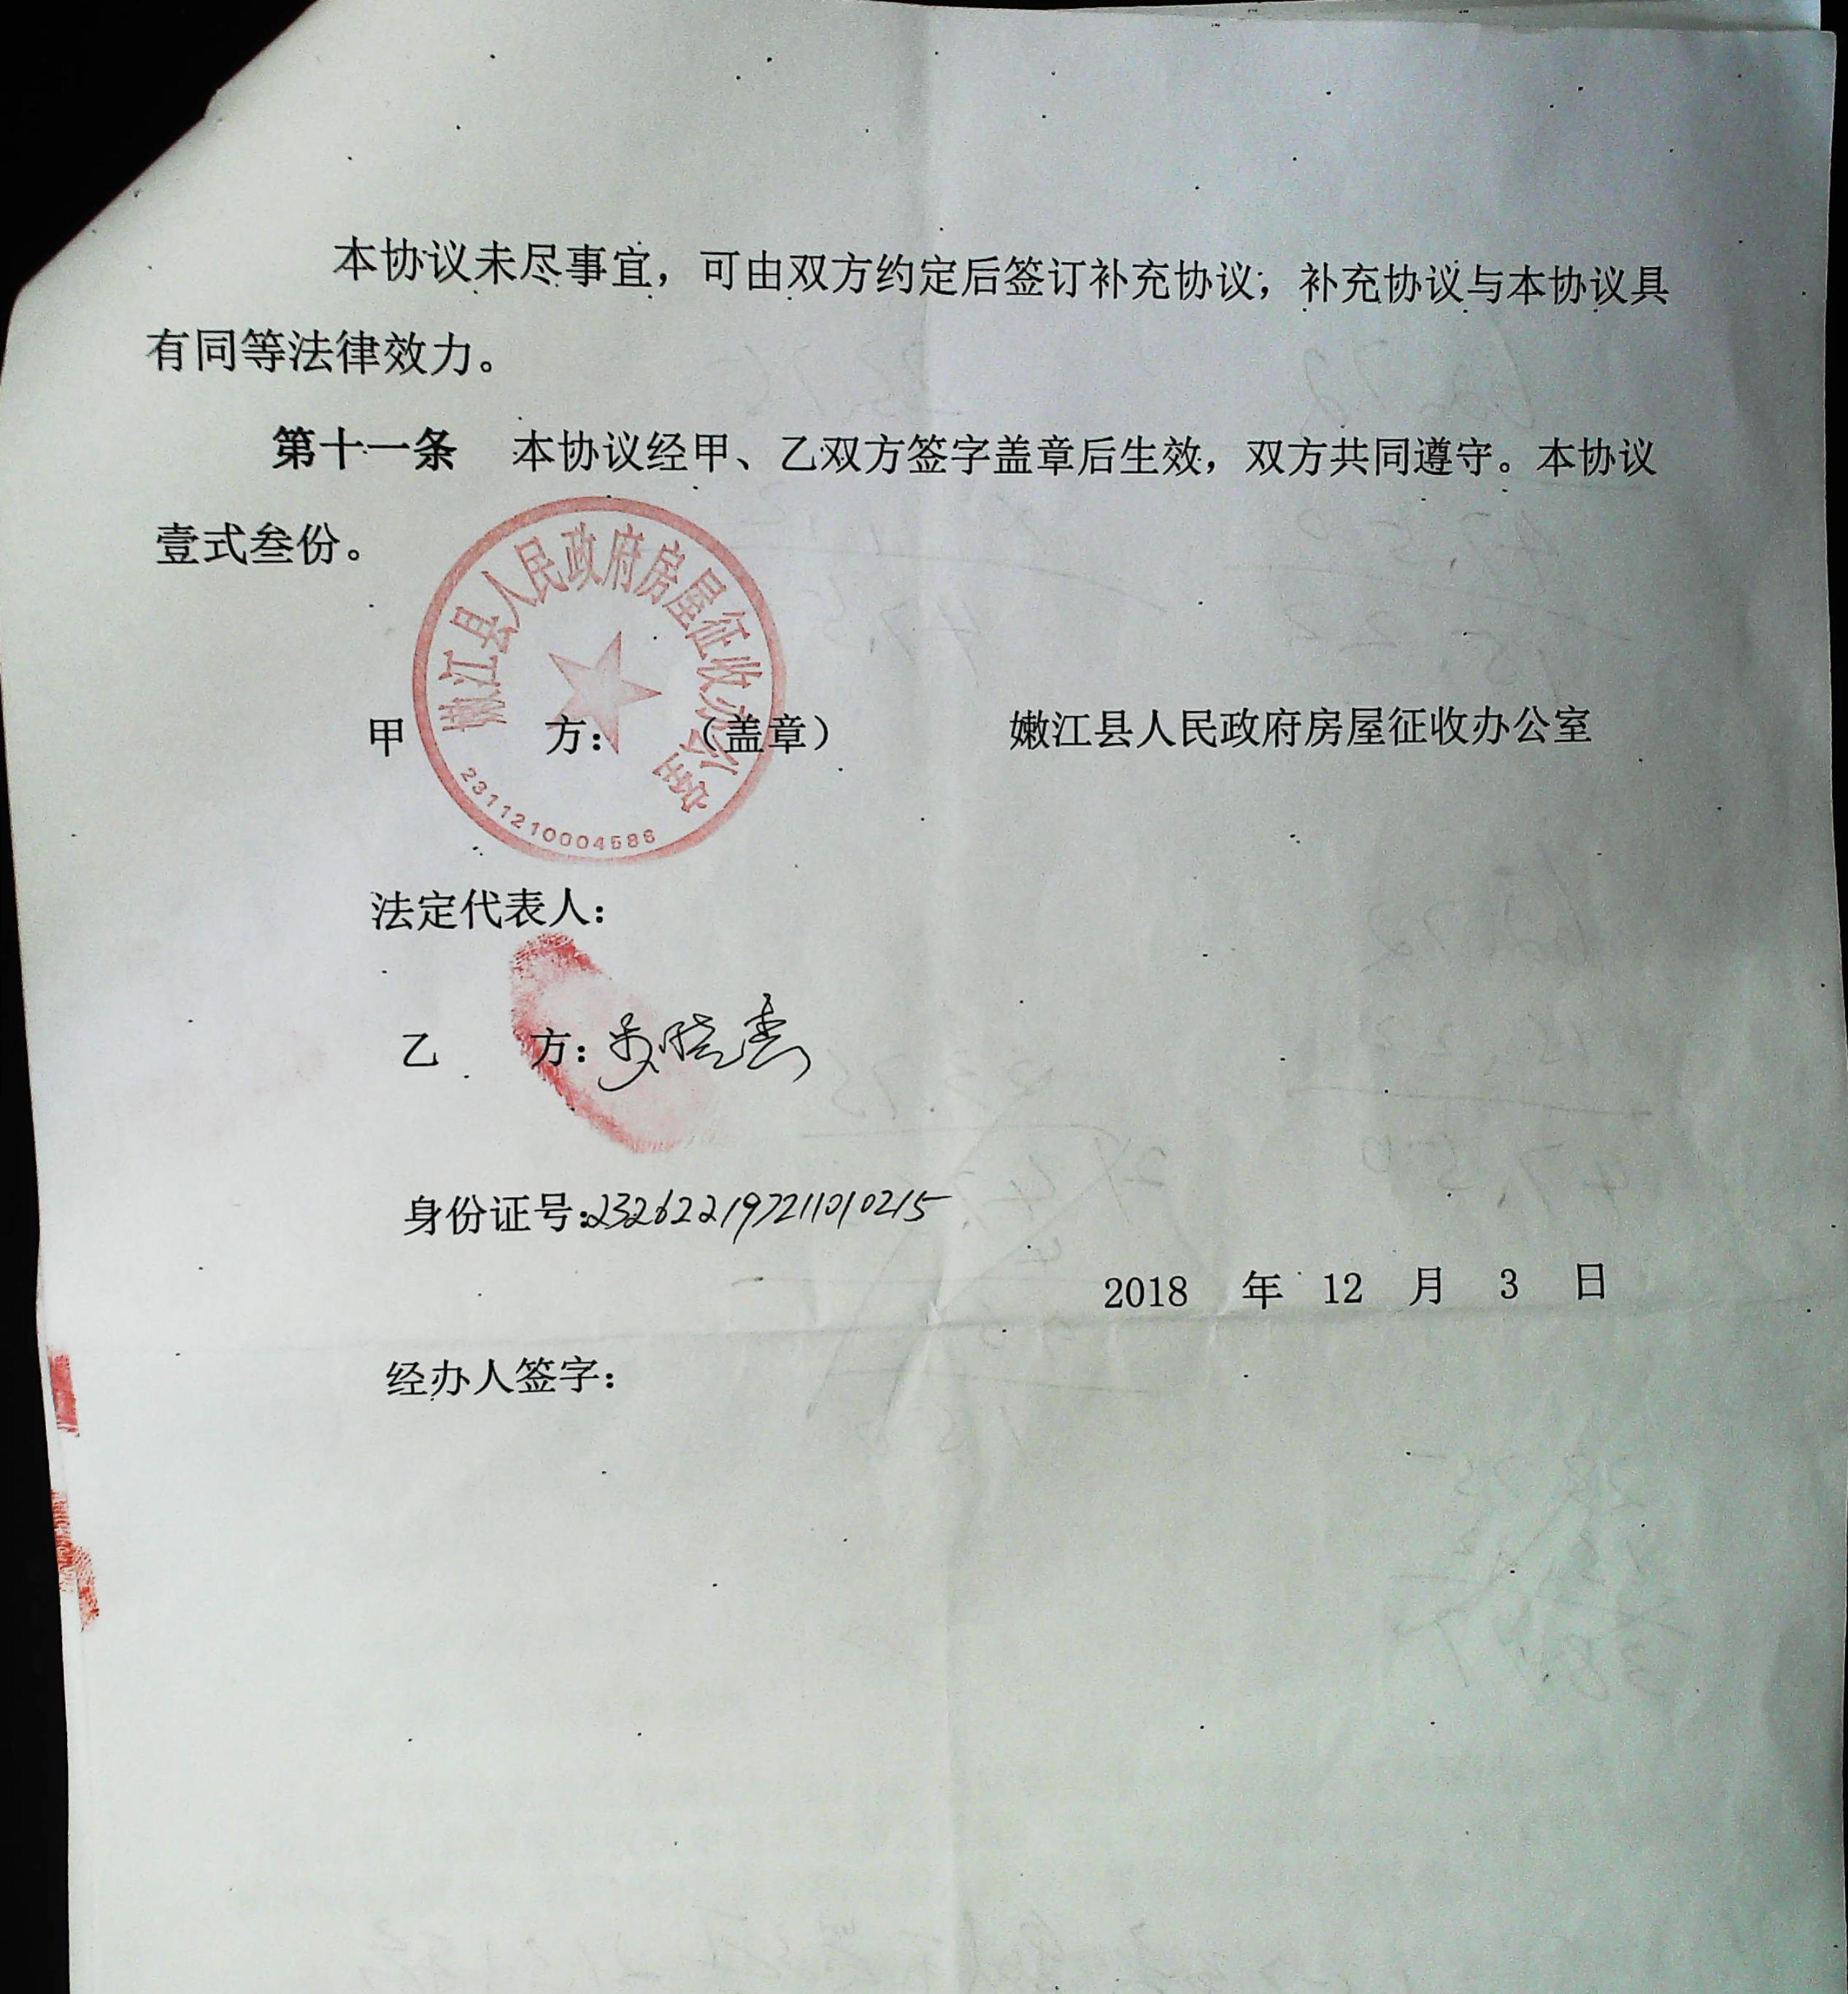 本协议未尽事宜，可由双方约定后签订补充协议；补充协议与本协议具
有同等法律效力。
第十一条 本协议经甲、乙双方签字盖章后生效，双方共同遵守。本协议
壹式叁份。
嫩江县人民政府房屋征收办公室
2311210004588
甲 方：（盖章） 嫩江县人民政府房屋征收办公室
法定代表人：
乙 方：
身份证号：232622197211010215
2018 年 12 月 3 日
经办人签字：